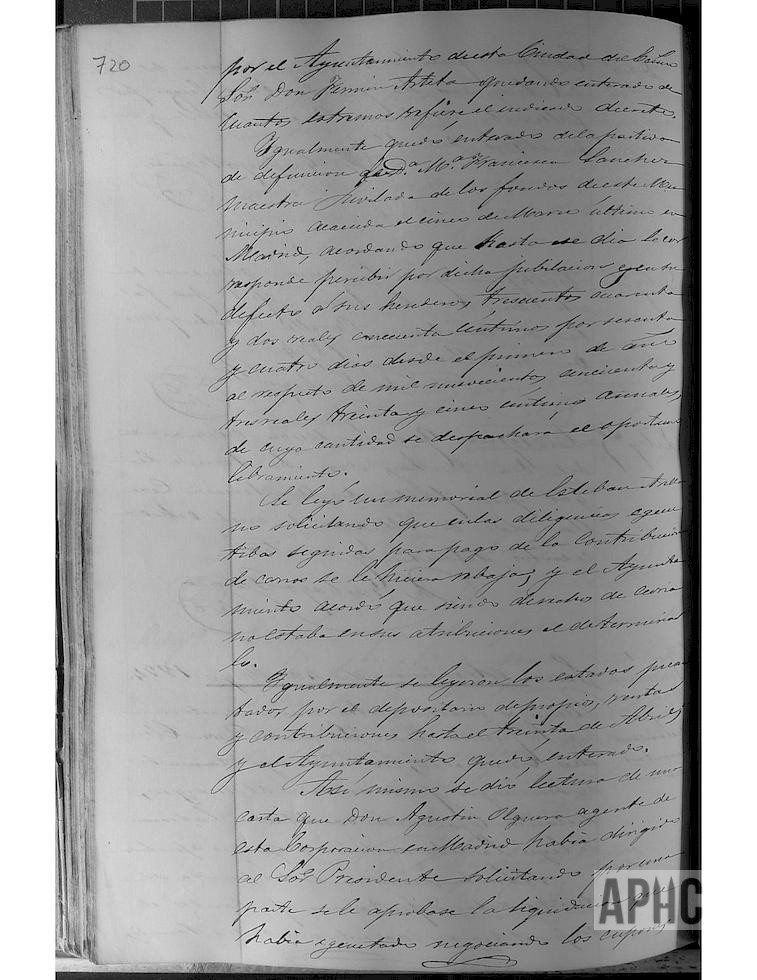 720
por el Ayuntamiento de esta Ciudad
Sor Don Fermin Arteta quedando enterado de
cuantos estremos refiere el indicado decreto.
Ygualmente quedó enterado de la partida
de defuncion de Da Ma Francisca Sanchez
maestra Jubilada de los fondos de este Mu
nicipio acaecida el cinco de Marzo último en
Madrid, acordando que hasta ese dia le cor
responde percibir por dicha jubilacion y en su
defecto a sus herederos trescientos cuarenta
y dos reales cincuenta céntimos por sesenta
y cuatro dias desde el primero de
al respeto de mil novecientos cincuenta y
tres reales treinta y cinco centimos anuales,
de cuya cantidad se despachará el oportuno
libramiento.
Se leyó un memorial de Esteban
no solicitando que en las diligencias egecu
tibas seguidas para pago de la Contribucion
de carros se le hiciera rebaja, y el Ayunta
miento acordó que siendo derechos de
no estaba en sus atribuciones el determinar
lo.
Ygualmente se leyeron los estados presen
tados por el depositario de propios, rentas
y contribuciones hasta el treinta de Abril,
y el Ayuntamiento quedó enterado.
Asi mismo se dió lectura de una
carta que Don Agustin Olguera agente de
esta Corporacion en Madrid habia dirigido
al Sor Presidente solicitando por una
parte se le aprobase la liquidacion que
habia egecutado negociando los cupones
APHC